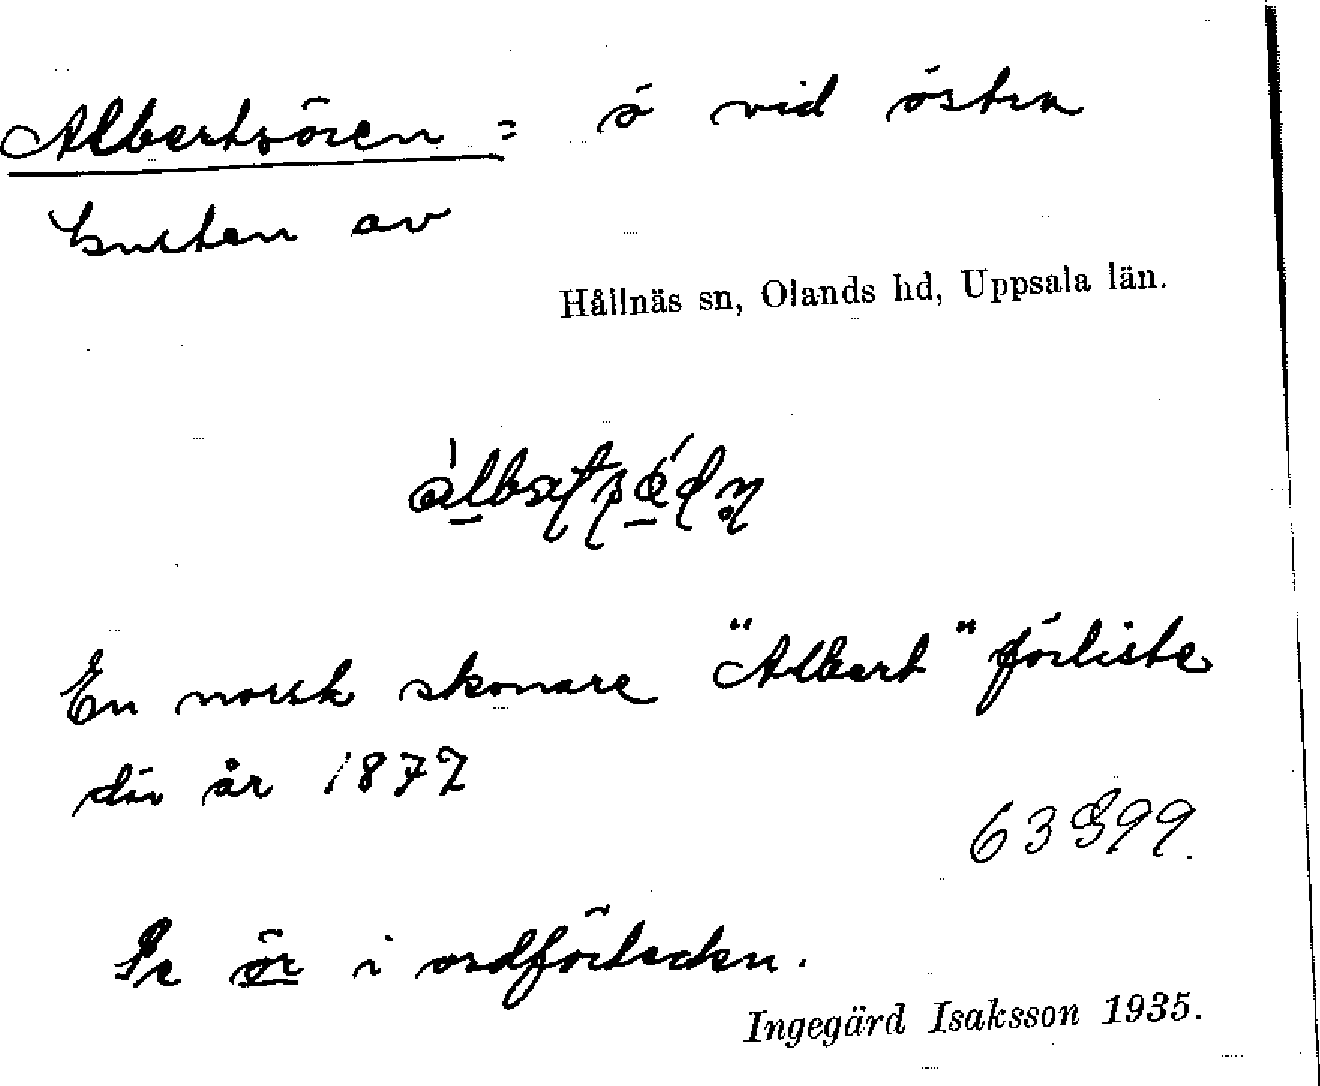 Albertsören = ö vid östra
kusten av
Hållnäs sn, Olands hd, Uppsala län.
En norsk skonare "Albert" förliste
där år 1872
63899.
Se ör i ordförteckn.
Ingegärd Isaksson 1935.